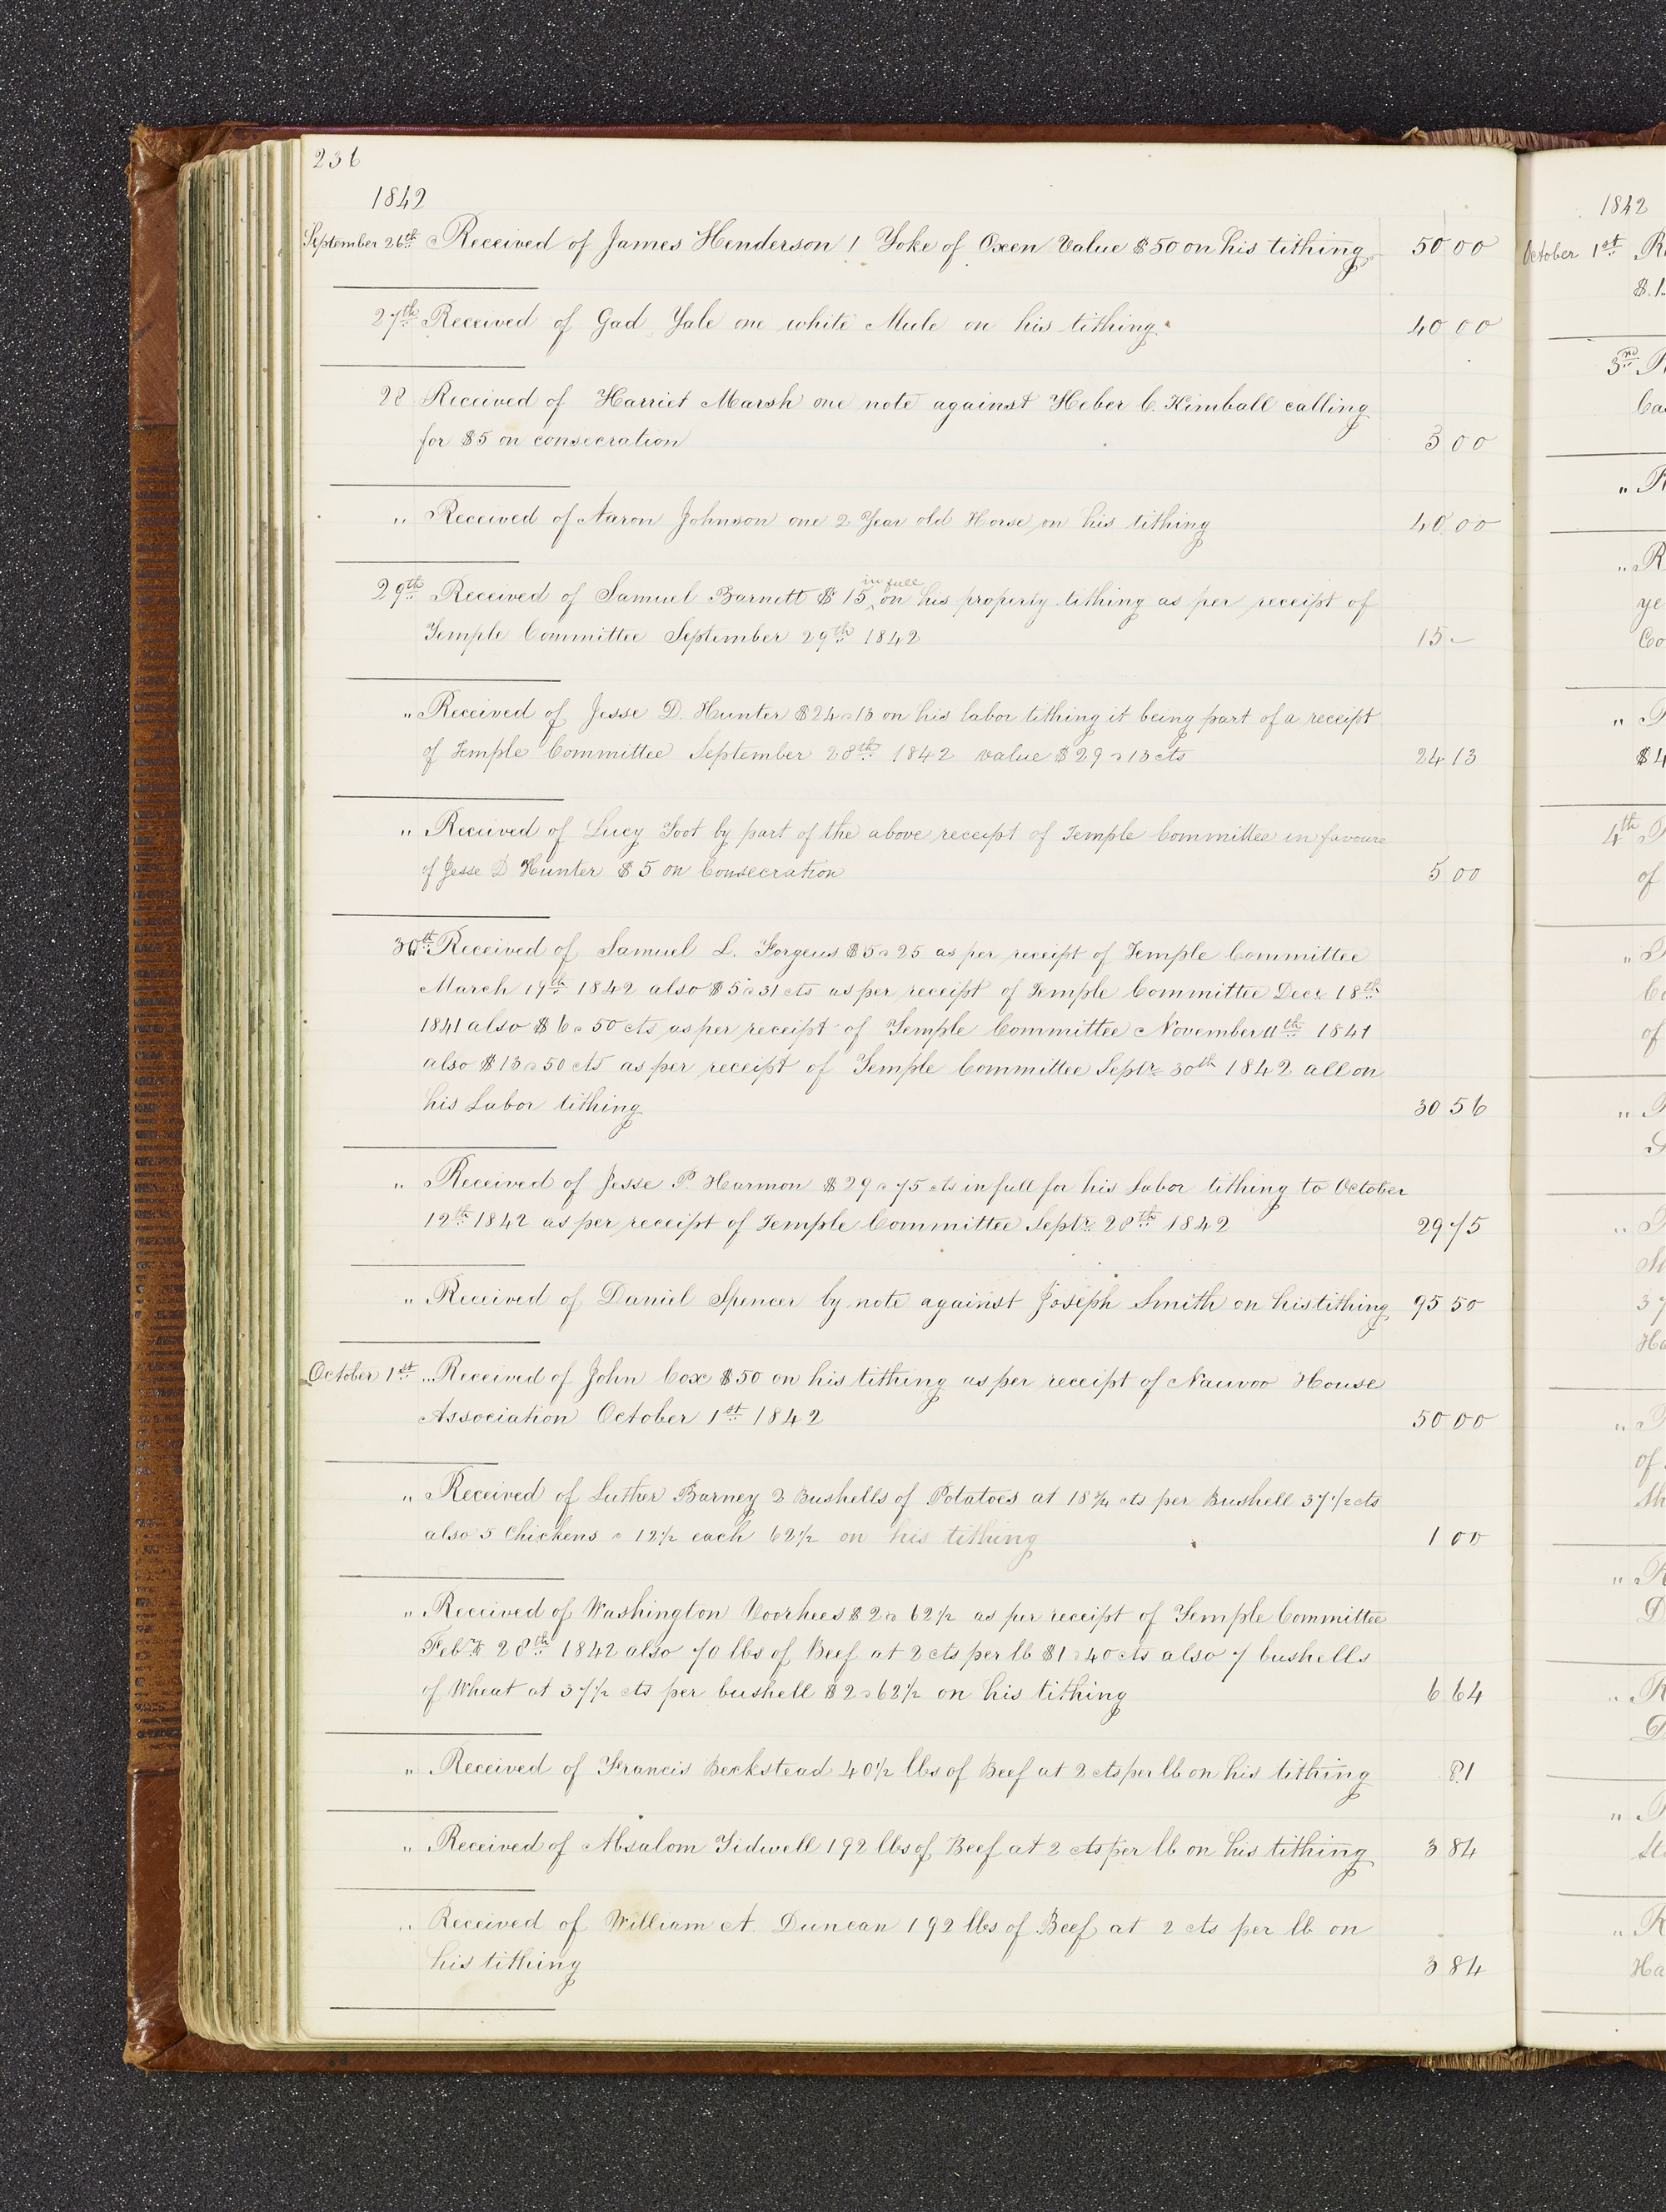 236
1842
September 26th Received of James Henderson 1 Yoke of Oxen Value $50 on his tithing 50 00
27th Received of Gad Yale one white Mule on his tithing 40 00
28 Received of Harriet Marsh one note against Heber C. Kimball calling
for $5 on consecration 5 00
" Received of Aaron Johnson one 2 Year old Horse on his tithing 40 00
in full
29th Received of Samuel Barnett $15 on his property tithing as per receipt of
Temple Committee September 29th 1842 15 -
" Received of Jesse D. Hunter $24 " 13 on his labor tithing it being part of a receipt
of Temple Committee September 28th 1842 value $29 " 13 cts 24 13
" Received of Lucy Foot by part of the above receipt of Temple Committee in favour
of Jesse D Hunter $5 on Consecration 5 00
30th Received of Samuel L. Forgeus $5 " 25 as per receipt of Temple Committee
March 19th 1842 also $5 " 31 cts as per receipt of Temple Committee Decr 18th
1841 also $6 " 50 cts as per receipt of Temple Committee November 11th 1841
also $13 " 50 cts as per receipt of Temple Committee Septr 30th 1842 all on
his Labor tithing 30 56
" Received of Jesse P. Harmon $29 " 75 cts in full for his Labor tithing to October
12th 1842 as per receipt of Temple Committee Septr 28th 1842 29 75
" Received of Daniel Spencer by note against Joseph Smith on his tithing 95 50
October 1st " Received of John Cox $50 on his tithing as per receipt of Nauvoo House
Association October 1st 1842 50 00
" Received of Luther Barney 2 Bushells of Potatoes at 18 3/4 cts per Bushell 37 1/2 cts
also 5 Chickens " 12 1/2 each 62 1/2 on his tithing 1 00
" Received of Washington Voorhees $2 " 62 1/2 as per receipt of Temple Committee
Feby 28th 1842 also 70 lbs of Beef at 2 cts per lb $1 " 40 cts also 7 bushells
of Wheat at 37 1/2 cts per bushell $2 " 62 1/2 on his tithing 6 64
" Received of Francis Beckstead 40 1/2 lbs of Beef at 2 cts per lb on his tithing 81
" Received of Absalom Tidwell 192 lbs of Beef at 2 cts per lb on his tithing 3 84
" Received of William A. Duncan 192 lbs of Beef at 2 cts per lb on
his tithing 3 84
1842
October 1st
$1.
3rd
"
" R
ye
Co
"
$4
4th
of
"
of
"
"
37
Ha
"
of
"
"
"
"
Ha